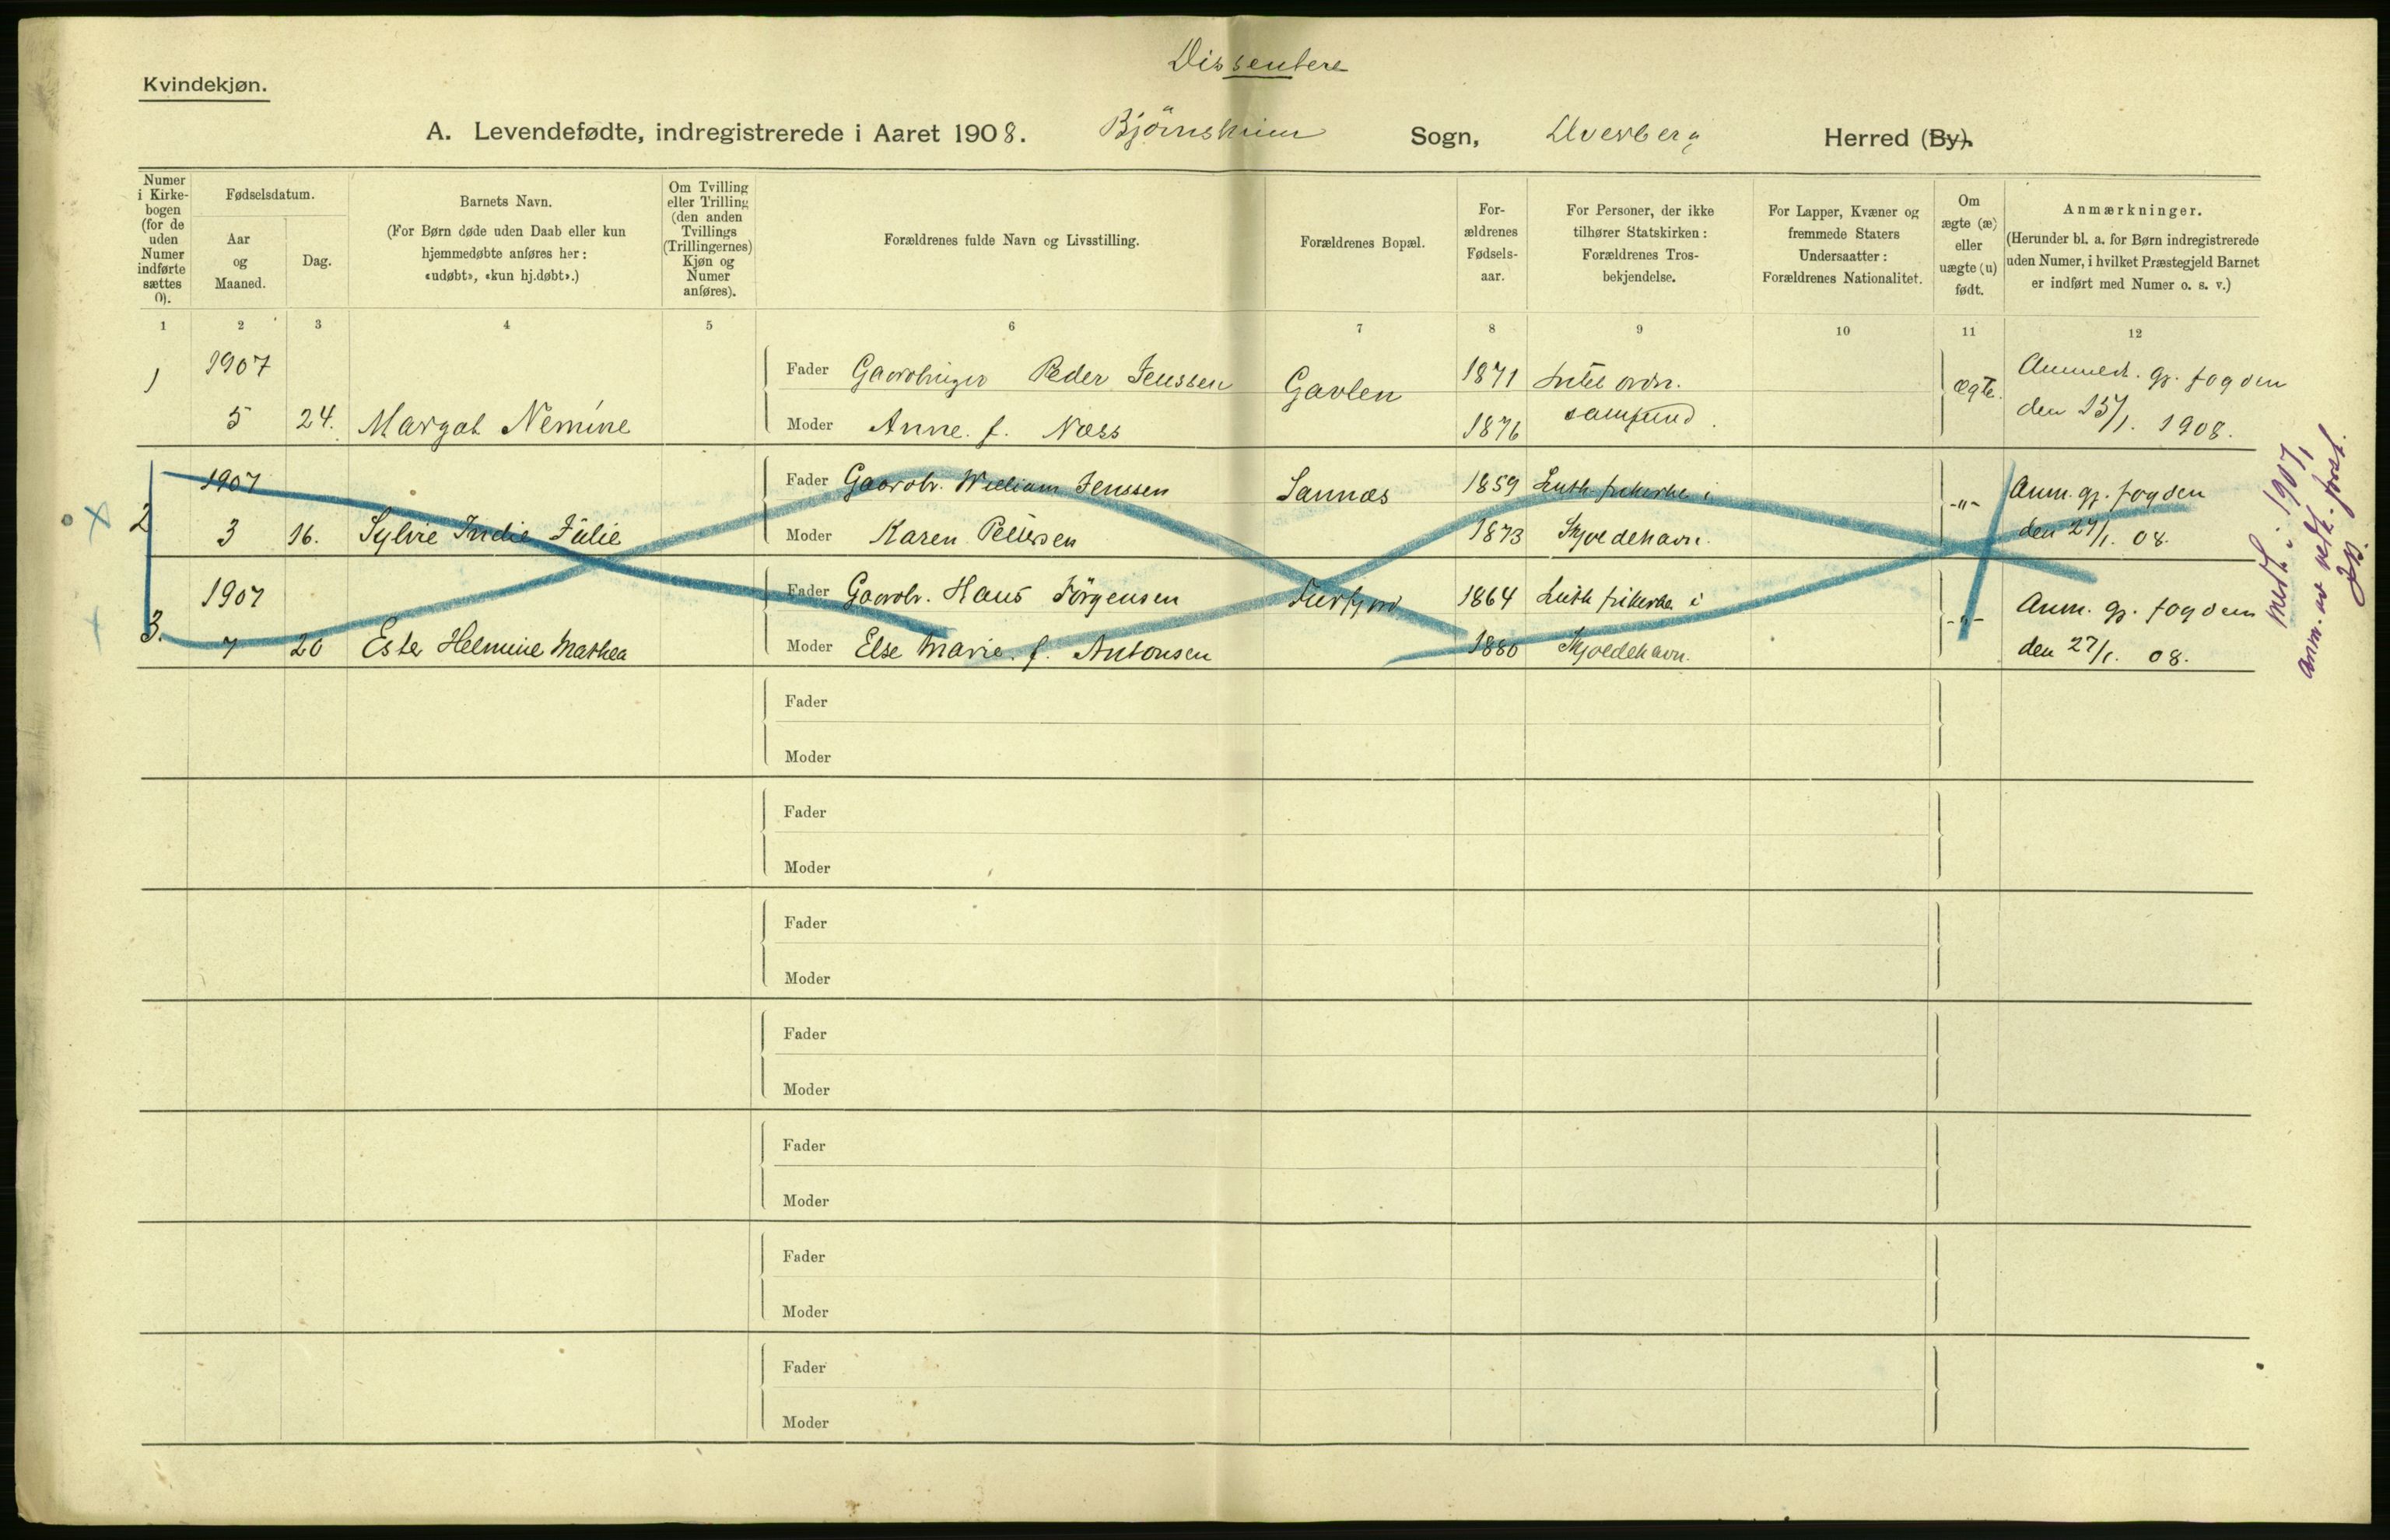 Dissentere
Kvindekjøn.
A. Levendefødte, indregistrerede i Aaret 1908. Björnskinn Sogn, Dverberg Herred (By).
Numer i Kirkebogen (for de uden Numer indførte sættes 0).
Fødselsdatum.
Aar og Maaned.
Dag.
Barnets Navn.
(For Børn døde uden Daab eller kun hjemmedøbte anføres her: «udøbt», «kun hj.døbt».)
Om Tvilling eller Trilling (den anden Tvillings (Trillingernes) Kjøn og Numer anføres).
Forældrenes fulde Navn og Livsstilling.
Forældrenes Bopæl.
For-ældrenes Fødsels-aar.
For Personer, der ikke tilhører Statskirken: Forældrenes Tros-bekjendelse.
For Lapper, Kvæner og fremmede Staters Undersaatter: Forældrenes Nationalitet.
Om ægte (æ) eller uægte (u) født.
Anmærkninger.
(Herunder bl. a. for Børn indregistrerede uden Numer, i hvilket Præstegjeld Barnet er indført med Numer o. s. v.)
1 2 3 4 5 6 7 8 9 10 11 12
1 1907 Fader Gaardbruger Peder Jenssen Gavlen 1871 ægte Anmeldt. gj. fogden
5 24. Margot Nemine Moder Anne. f. Næss 1876 samfund. den 15/1. 1908.
2 1907 Fader Gaardbr. William Jenssen Sannæs 1859 Luth frikirke i -"- Anm. gj. fogden
3 16. Sylvie Indie Julie Moder Karen Pettersen 1873 den 27/1. 08.
3. 1907 Fader Gaardbr. Hans Jörgensen 1864 Luth frikirke i -"- Anm. gj. fogden
7 20 Ester Helmine Mathea Moder Else Marie. f. Antonsen 1880 den 27/1. 08.
medt. i 1907,
Fader
Moder
Fader
Moder
Fader
Moder
Fader
Moder
Fader
Moder
Fader
Moder
Fader
Moder